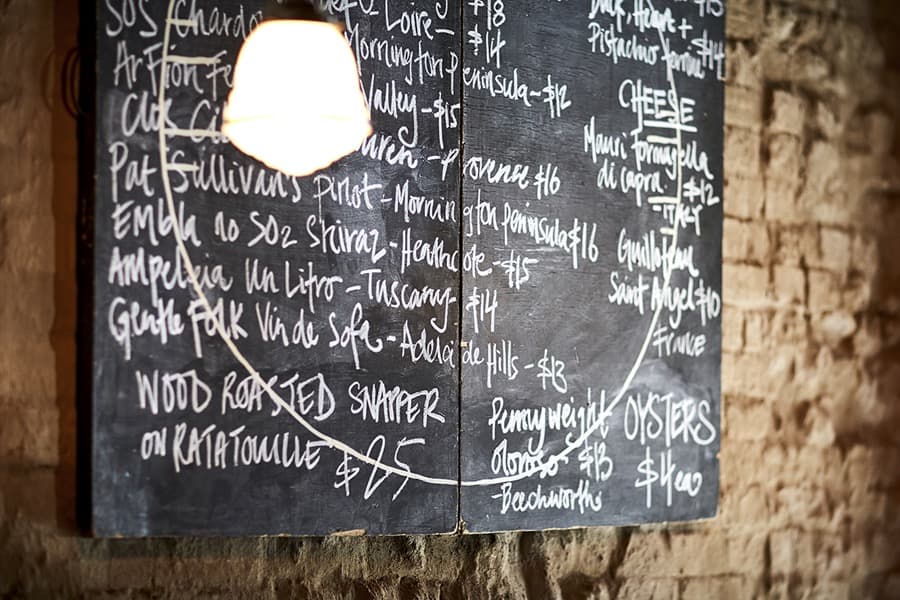 SOS Chardo
Loire - $18
Mornington Peninsula - $12
$14
Valley - $15
- Provence $16
Pat Sullivan's Pinot - Mornington Peninsula $16
Embla no SO2 Shiraz - Heathcote - $15
Ampeleia Un Litro - Tuscany - $14
Gentle Folk Vin de Sofa - Adelaide Hills - $13
WOOD ROASTED SNAPPER
ON RATATOUILLE $25
Pennyweight
Oloroso $13
- Beechworth
Duck, Heart +
Pistachio terrine $14
CHEESE
Mauri formagella
di capra $12
- ITALY
Guilloteau
Saint Angel $10
France
OYSTERS
$4ea